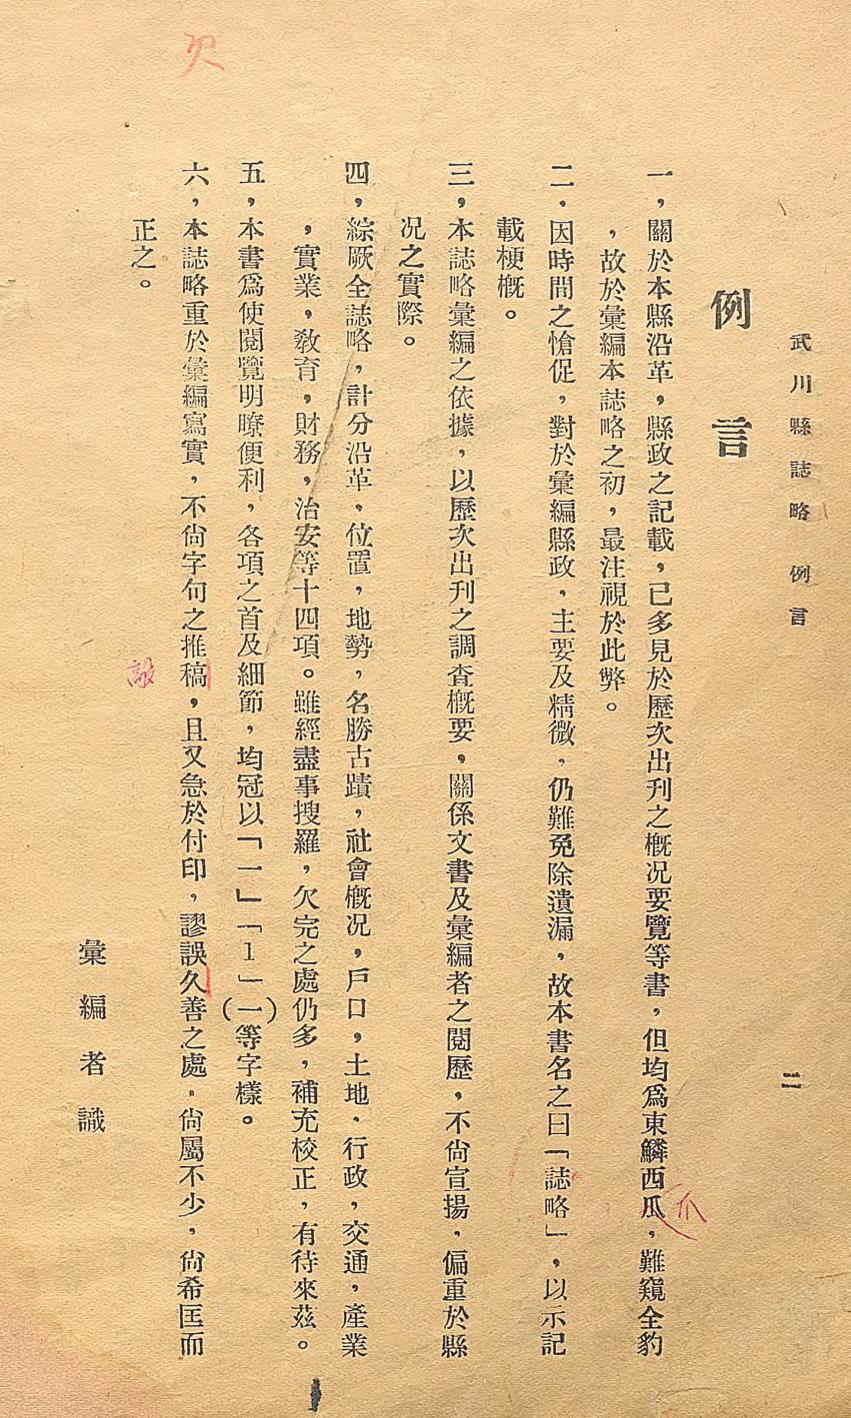 武川縣誌略　例言
二
例言
一，關於本縣沿革，縣政之記載，已多見於歷次出刊之概况要覽等書，但均爲東鱗西瓜，難窺全豹
，故於彙編本誌略之初，最注視於此弊。
爪
二．因時間之愴促，對於彙編縣政，主要及精微，仍難免除遺漏，故本書名之曰「誌略」，以示記
載梗概。
三，本誌略彙編之依據，以歷次出刊之調查概要，關係文書及彙編者之閱歷，不尙宣揚，偏重於縣
况之實際。
四，綜厥全誌略，計分沿革，位置，地勢，名勝古蹟，社會概况，戶口，土地，行政，交通，產業
，實業，敎育，財務，治安等十四項。雖經盡事搜羅，欠完之處仍多，補充校正，有待來茲。
五，本書爲使閱覽明瞭便利，各項之首及細節，均冠以「一」「1」(一)等字樣。
六，本誌略重於彙編寫實，不尙字句之推稿，且又急於付印，謬誤久善之處，尙屬不少，尙希匡而
正之。
敲
欠
彙編者識